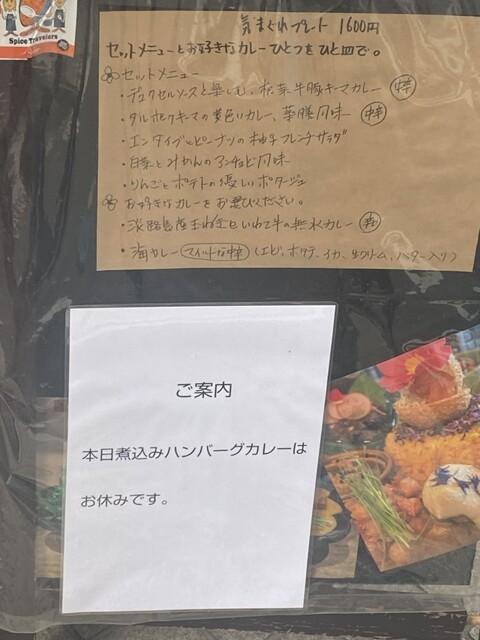 Spice Travelers
気まぐれプレート 1600円
セットメニューとお好きなカレーひとつをひと皿で。
セットメニュー
・デュクセルソースと楽しむ、根菜牛豚キーマカレー 中辛
・タルホウキーマの黄色いカレー、薬膳風味 中辛
・エンダイブとピーナツの柚子フレンチサラダ
・白菜とみかんのアンチョビ風味
・りんごとポテトの優しいポタージュ
お好きなカレーをお選びください。
・淡路島産玉ねぎといわて牛の無水カレー 辛
・海カレー スイートな中辛 (エビ、ホタテ、イカ、生クリーム、バター入り)
ご案内
本日煮込みハンバーグカレーは
お休みです。